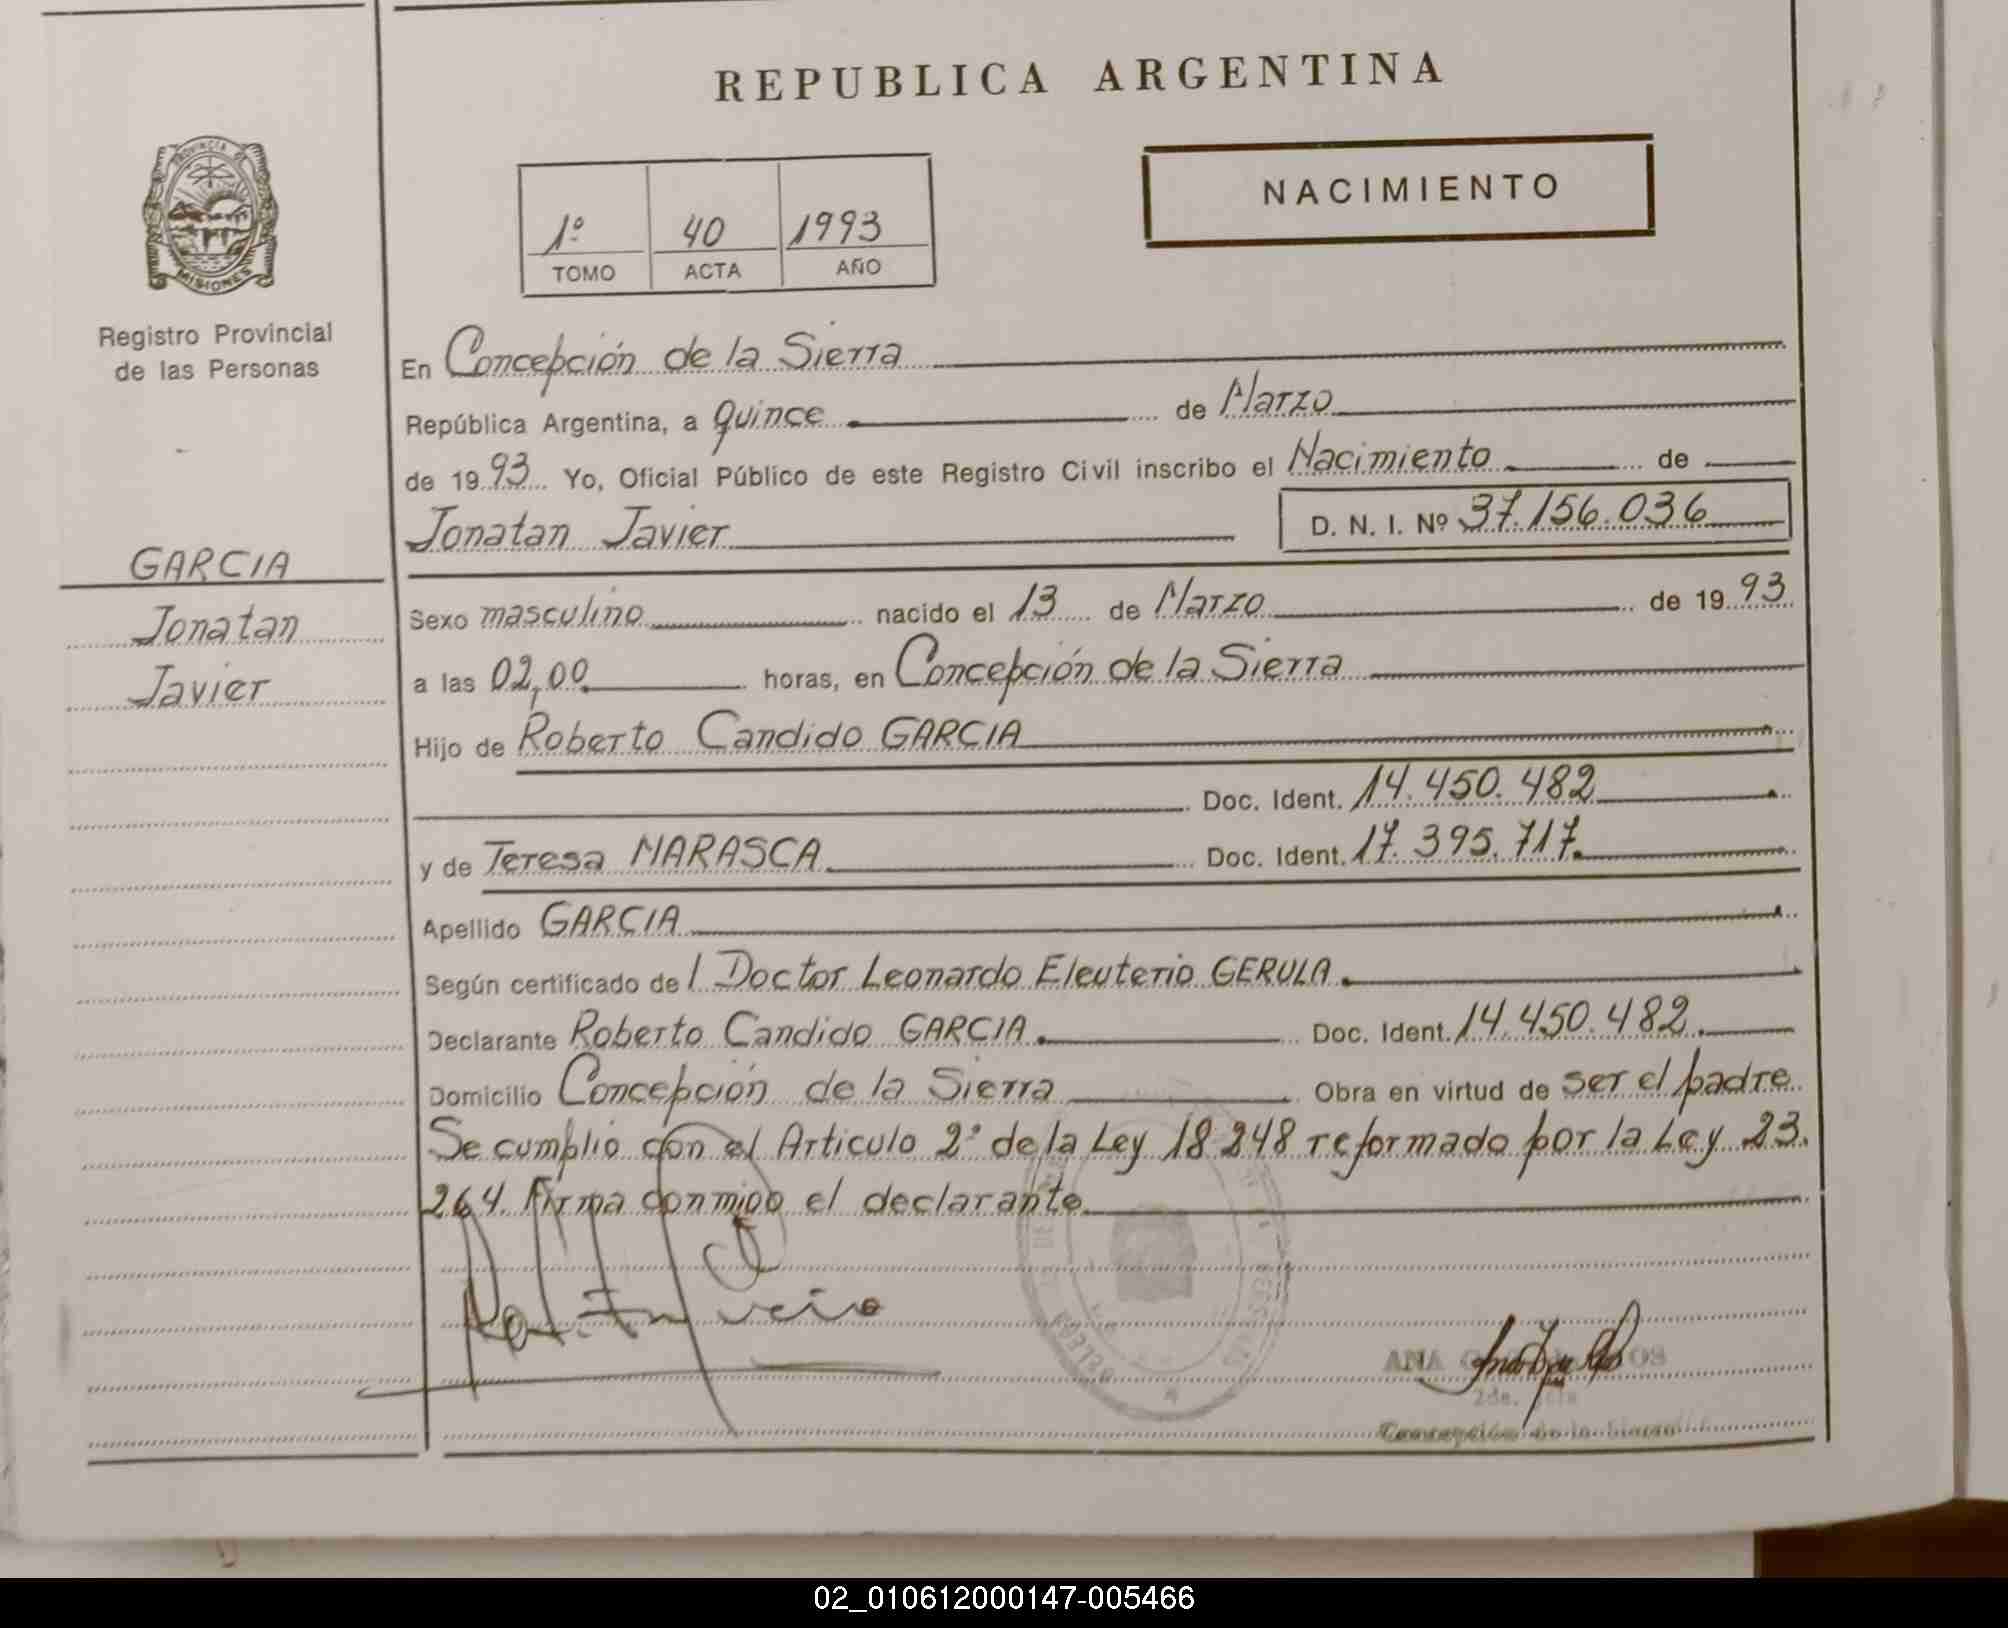 REPUBLICA ARGENTINA
PROVINCIA DE
MISIONES
Registro Provincial
de las Personas
NACIMIENTO
1º 40 1993
TOMO ACTA AÑO
En Concepción de la Sierra
República Argentina, a quince de Marzo
de 1993 Yo, Oficial Público de este Registro Civil inscribo el Nacimiento de
Jonatan Javier D. N. I. Nº 37.156.036
GARCIA
Jonatan
Javier
Sexo masculino nacido el 13 de Marzo de 1993
a las 02,00 horas, en Concepción de la Sierra
Hijo de Roberto Candido GARCIA
Doc. Ident. 14.450.482
y de Teresa MARASCA Doc. Ident. 17.395.717
Apellido GARCIA
Según certificado del Doctor Leonardo Eleuterio GERULA
Declarante Roberto Candido GARCIA Doc. Ident. 14.450.482
Domicilio Concepción de la Sierra Obra en virtud de ser el padre
Se cumplio con el Articulo 2º de la Ley 18248 reformado por la Ley 23.
264. Firma conmigo el declarante
ANA
Concepción de la Sierra
02_010612000147-005466